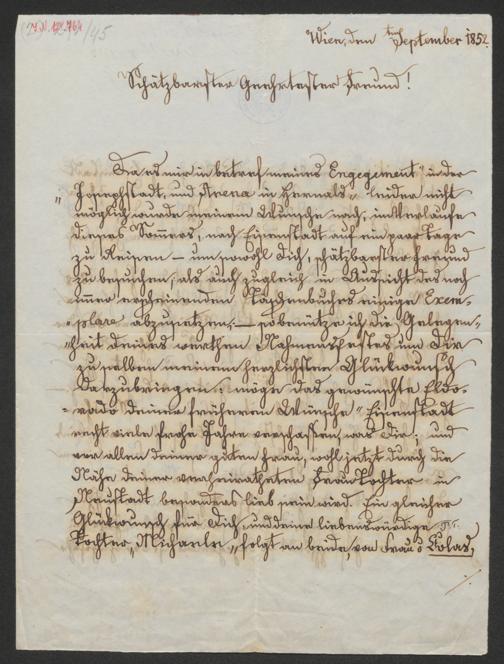 Wien, den September 1852.
Schätzbarster Geehrtester Freund!
Da es mir in betref meines Engegement in der
"Josephstadt, und Arena in Hernals," leider nicht
möglich wurde meinem Wunsche nach, im Verlaufe
dieses Sommers, nach Eisenstadt auf ein paar Tage
zu Reisen – um sowohl Dich, schätzbarster Freund
zu besuchen, als auch zugleich in Aussicht des noch
immer erscheinenden Taschenbuches einige Exem-
-plare abzusetzen, – so benütze ich die Gelegen-
-heit deines werthen Nahmensfestes um Dir
zu selben meinem herzlichsten Glückwunsch
darzubringen: möge das gewünschte Eldo-
-rado deiner früheren Wünsche "Eisenstadt
recht viele frohe Jahre verschaffen, was Dir; und
vor allem deiner guten Frau, wohl jetzt durch die
Nähe deiner verheiratheten Frau Tochter in
Neustadt besonders lieb sein wird. Ein gleicher
Glückwunsch für Dich, und deine liebenswürdige
Tochter, Michaele, folgt an beide, von Frau v Colas,